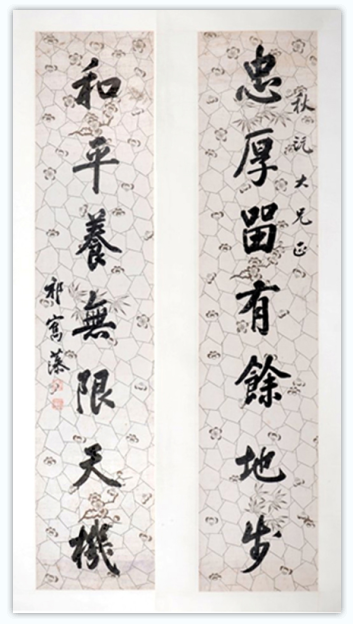 秋沉大兄正
忠厚留有餘地步
和平養無限天機
祁寯藻